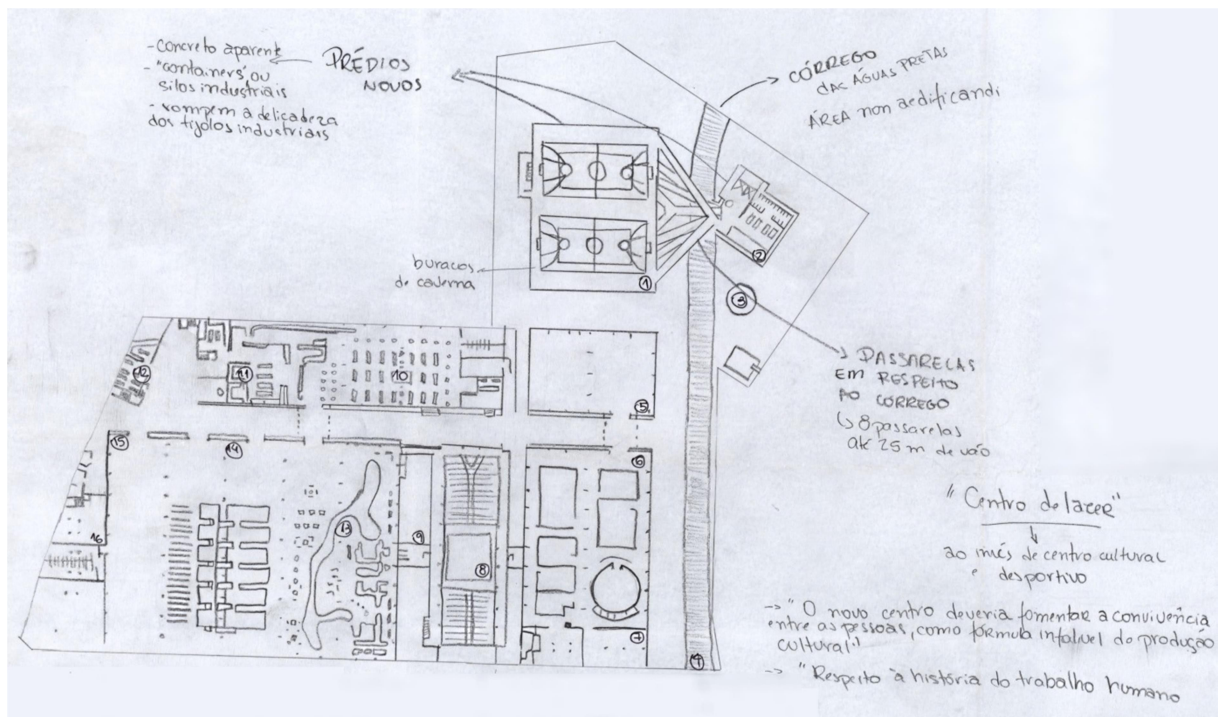 - concreto aparente
- "containers" ou
silos industriais
- rompem a delicadeza
dos tijolos industriais
PRÉDIOS
NOVOS
CÓRREGO
DAS ÁGUAS PRETAS
ÁREA non aedificandi
buracos
de caverna
1
2
3
PASSARELAS
EM RESPEITO
AO CÓRREGO
↳ 8 passarelas
até 25 m de vão
12
11
10
5
15
14
6
16
13
9
8
7
4
"Centro de lazer"
ao invés de centro cultural
e desportivo
-> "O novo centro deveria fomentar a convivência
entre as pessoas, como fórmula infalível de produção
cultural"
-> "Respeito à história do trabalho humano